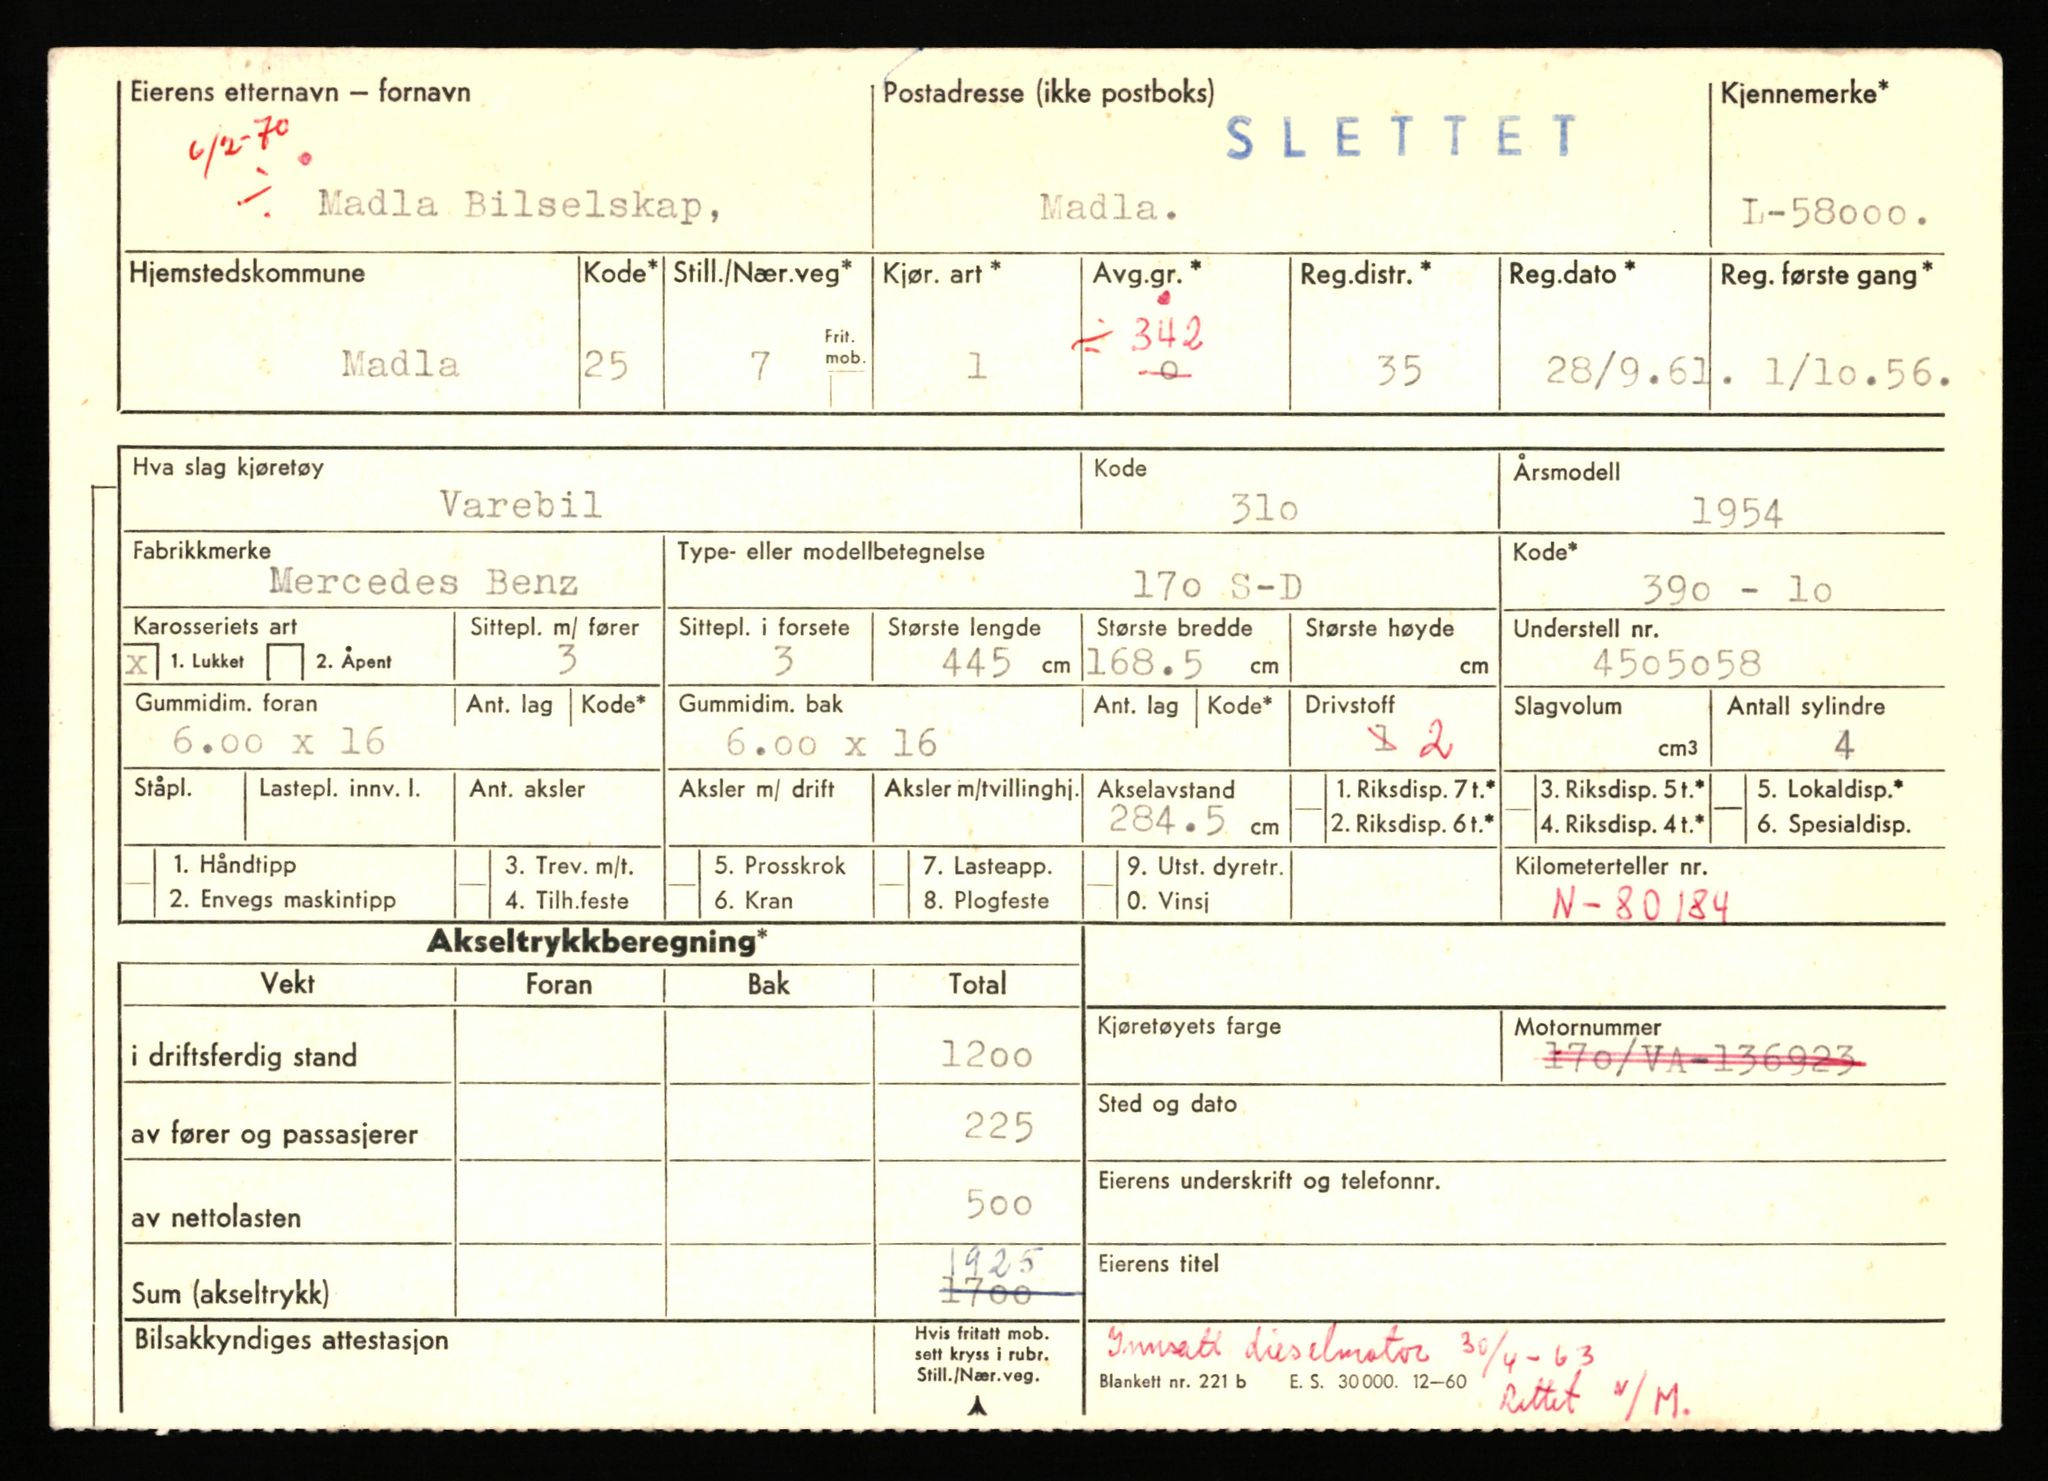 Eierens etternavn – fornavn Postadresse (ikke postboks) Kjennemerke*
6/2-70 SLETTET
Madla Bilselskap, Madla. L-58000.
Hjemstedskommune Kode* Still./Nær.veg* Kjør. art* Avg.gr.* Reg.distr.* Reg.dato* Reg. første gang*
÷ 342
Frit. mob.
Madla 25 7 1 0 35 28/9.61. 1/10.56.
Hva slag kjøretøy Kode Årsmodell
Varebil 310 1954
Fabrikkmerke Type- eller modellbetegnelse Kode*
Mercedes Benz 170 S-D 390 - 10
Karosseriets art Sittepl. m/ fører Sittepl. i forsete Største lengde Største bredde Største høyde Understell nr.
x 1. Lukket 2. Åpent 3 3 445 cm 168.5 cm cm 4505058
Gummidim. foran Ant. lag Kode* Gummidim. bak Ant. lag Kode* Drivstoff Slagvolum Antall sylindre
6.00 x 16 6.00 x 16 1 2 cm3 4
Ståpl. Lastepl. innv. l. Ant. aksler Aksler m/ drift Aksler m/tvillinghj. Akselavstand 1. Riksdisp. 7 t.* 3. Riksdisp. 5 t.* 5. Lokaldisp.*
284.5 cm 2. Riksdisp. 6 t.* 4. Riksdisp. 4 t.* 6. Spesialdisp.
1. Håndtipp 3. Trev. m/t. 5. Prosskrok 7. Lasteapp. 9. Utst. dyretr. Kilometerteller nr.
2. Envegs maskintipp 4. Tilh.feste 6. Kran 8. Plogfeste 0. Vinsj N-80184
Akseltrykkberegning*
Vekt Foran Bak Total
Kjøretøyets farge Motornummer
i driftsferdig stand 1200 170/VA-136923
Sted og dato
av fører og passasjerer 225
Eierens underskrift og telefonnr.
av nettolasten 500
1925 Eierens titel
Sum (akseltrykk) 1700
Bilsakkyndiges attestasjon Hvis fritatt mob. sett kryss i rubr. Still./Nær.veg.
Innsatt dieselmotor 30/4-63
Blankett nr. 221 b E. S. 30 000. 12—60
Rettet N/M.